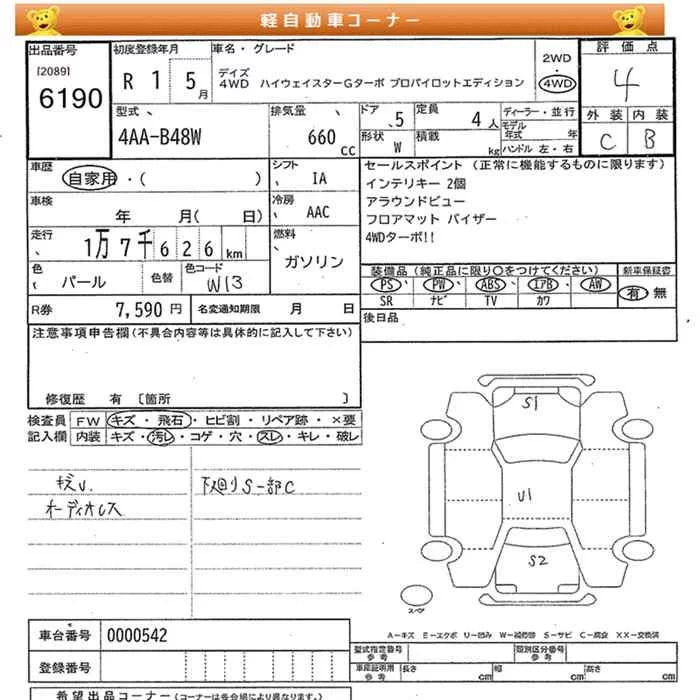 軽自動車コーナー
出品番号
[2089]
6190
初度登録年月
R 1 5月
車名・グレード
デイズ
4WD ハイウェイスターGターボ プロパイロットエディション
2WD
4WD
評価点
4
外装 内装
C B
型式
4AA-B48W
排気量
660 cc
ドア 5
定員 4人
形状 W
積載 kg
ディーラー・並行
モデル年式 年
ハンドル 左・右
車歴
自家用・( )
シフト
IA
車検
年 月( 日)
冷房
AAC
走行
1万7千626km
燃料
ガソリン
色
パール
色替
色コード
W13
R券 7,590円
名変通知期限 月 日
セールスポイント (正常に機能するものに限ります)
インテリキー 2個
アラウンドビュー
フロアマット バイザー
4WDターボ!!
装備品(純正品に限り〇をつけてください)
PS PW ABS エアB AW
SR ナビ TV カワ
新車保証書
有・無
後日品
注意事項申告欄(不具合内容等は具体的に記入して下さい)
修復歴 有 [箇所 ]
検査員記入欄
FW キズ・飛石・ヒビ割・リペア跡・×要
内装 キズ・汚レ・コゲ・穴・スレ・キレ・破レ
キズU.
オーディオレス
下廻りS一部C
S1
U1
S2
スペア
A-キズ E-エクボ U-凹み W-補修跡 S-サビ C-腐食 XX-交換済
車台番号 0000542
登録番号
型式指定番号 参考
類別区分番号 参考
車庫証明用 参考
長さ cm
幅 cm
高さ cm
希望出品コーナー(コーナーは各会場により異なります。)